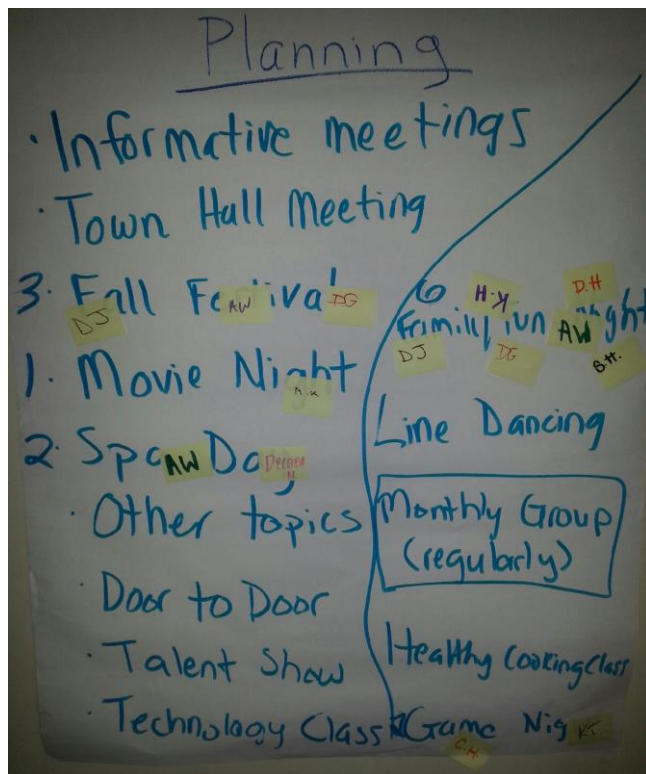 Planning
· Informative meetings
· Town Hall Meeting
3. Fall Festival
DJ AW DG
1. Movie Night
2. Spa Day
AW
· Other topics
· Door to Door
· Talent Show
· Technology Class
6 K.H D.H
Family Fun Night
DJ DG AW
Line Dancing
Monthly Group
(regularly)
Healthy Cooking Class
Game Nig
C.H. KT